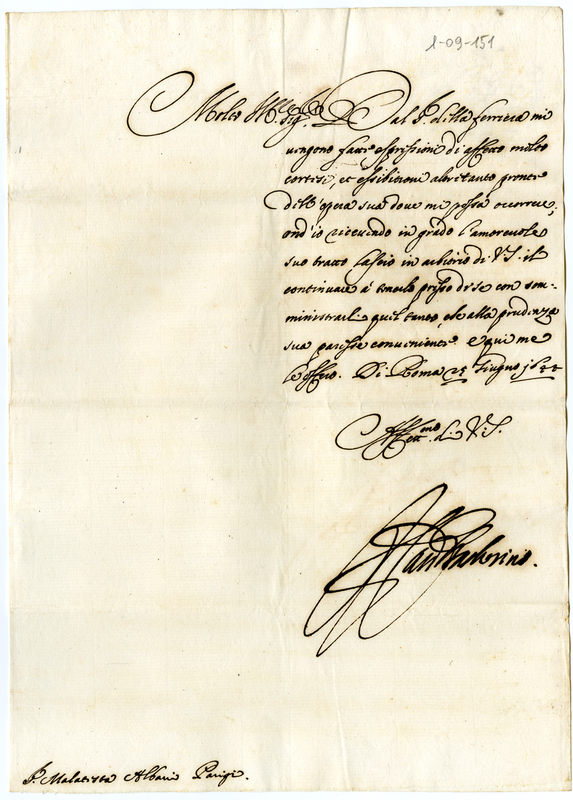 1-09-151
Molto Ill.re Sig.re Dal S.r della ferriera mi
vengono fatte espressioni di affetto molto
cortesi, et essibitioni altretanto pronte
dell'opera sua dove mi possa occorrere;
ond'io ricevendo in grado l'amorevole
suo tratto lascio in arbitrio di V.S. il
continuare à tenerlo presso di se con som-
ministrarli quel tanto, che alla prudenza
sua paresse conveniente. E qui me
le offero. Di Roma 25 Giugno
Aff.mo di V.S.
Barberino.
S.r Malatesta Albani Parigi.